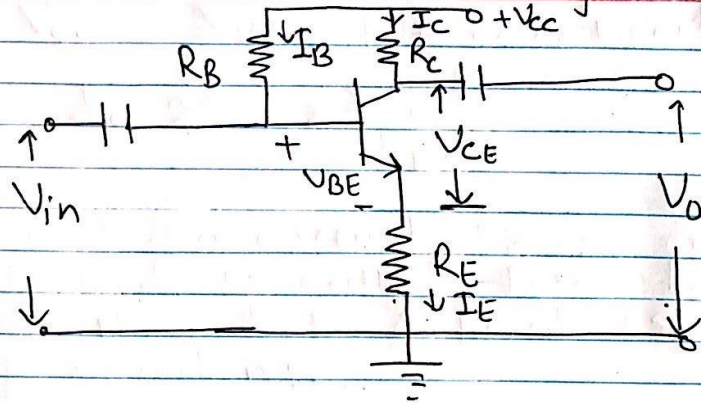 I_C +V_CC
R_B I_B R_C
+
V_BE V_CE
-
V_in V_0
R_E
I_E